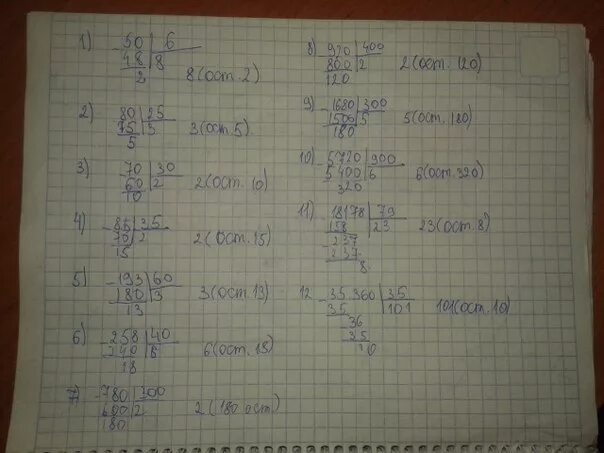 1) - 50 | 6
48 | 8
2
8 (ост. 2)
2) 80 | 25
75 | 3
5
3 (ост. 5)
3) - 70 | 30
60 | 2
10
2 (ост. 10)
4) - 85 | 35
70 | 2
15
2 (ост. 15)
5) - 193 | 60
180 | 3
13
3 (ост. 13)
6) - 258 | 40
240 | 6
18
6 (ост. 18)
7) - 780 | 300
600 | 2
180
2 (180 ост.)
8) - 920 | 400
800 | 2
120
2 (ост. 120)
9) - 1680 | 300
1500 | 5
180
5 (ост. 180)
10) - 5720 | 900
5400 | 6
320
6 (ост. 320)
11) - 18178 | 79
158 | 23
- 237
237
8
23 (ост. 8)
12 - 35 360 | 35
35 | 101
36
35
10
101 (ост. 10)